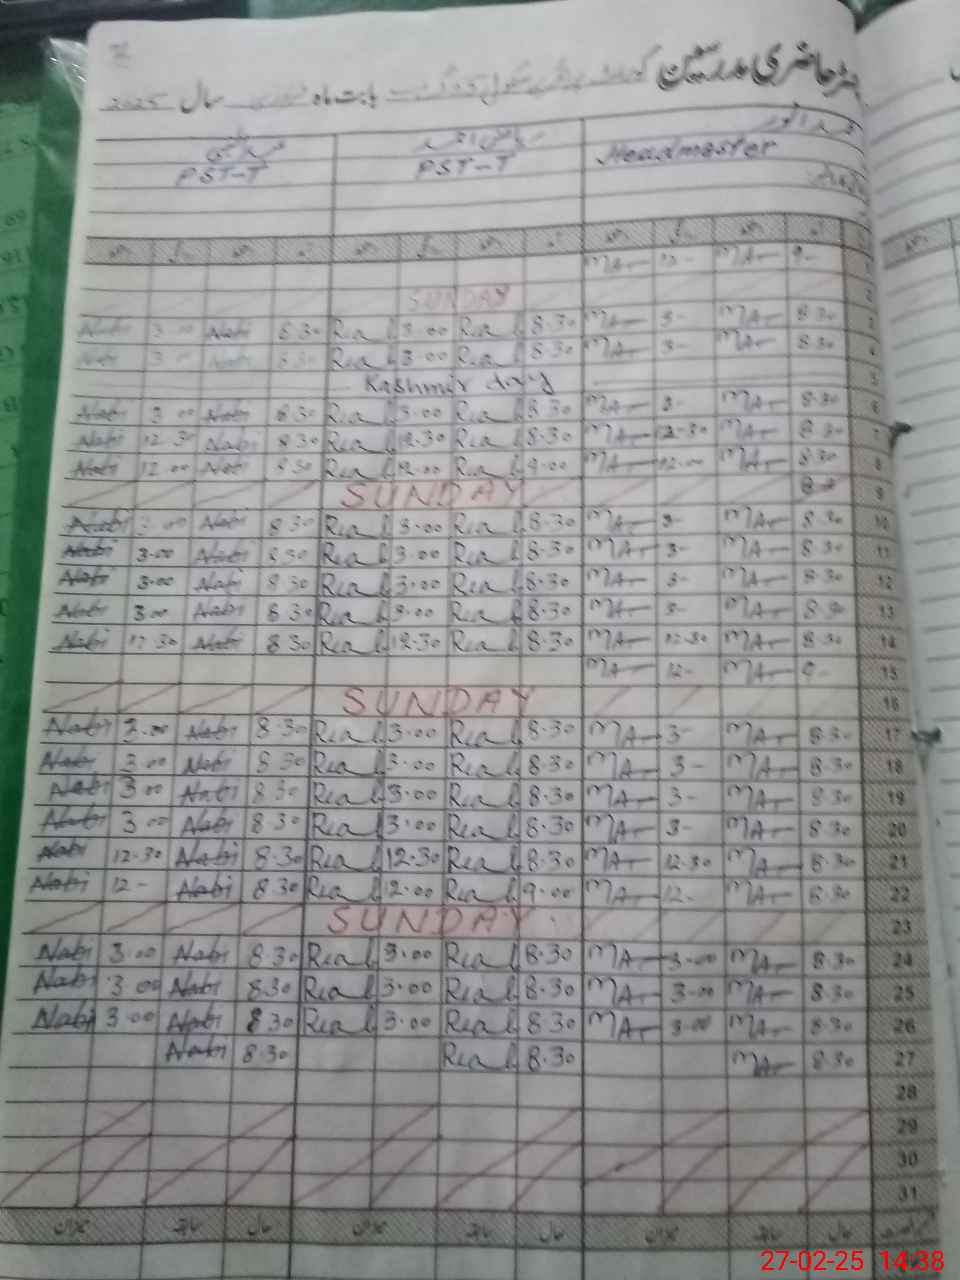 رجسٹر حاضری مدرسین گورنمنٹ پرائمری سکول بابت ماہ فروری سال 2025
Headmaster
PST-T PST-T
MA 12- MA 9- 1
SUNDAY 2
Nabi 3.00 Nabi 8.30 Rial 3.00 Rial 8.30 MA 3- MA 8.30 3
Nabi 3.00 Nabi 8.30 Rial 3.00 Rial 8.30 MA 3- MA 8.30 4
Kashmir day 5
Nabi 3.00 Nabi 8.30 Rial 3.00 Rial 8.30 MA 3- MA 8.30 6
Nabi 12.30 Nabi 8.30 Rial 12.30 Rial 8.30 MA 12.30 MA 8.30 7
Nabi 12.00 Nabi 8.30 Rial 12.00 Rial 9.00 MA 12.00 MA 8.30 8
SUNDAY 9
Nabi 3.00 Nabi 8.30 Rial 3.00 Rial 8.30 MA 3- MA 8.30 10
Nabi 3.00 Nabi 8.30 Rial 3.00 Rial 8.30 MA 3- MA 8.30 11
Nabi 3.00 Nabi 8.30 Rial 3.00 Rial 8.30 MA 3- MA 8.30 12
Nabi 3.00 Nabi 8.30 Rial 3.00 Rial 8.30 MA 3- MA 8.30 13
Nabi 12.30 Nabi 8.30 Rial 12.30 Rial 8.30 MA 12.30 MA 8.30 14
MA 12- MA 9- 15
SUNDAY 16
Nabi 3.00 Nabi 8.30 Rial 3.00 Rial 8.30 MA 3- MA 8.30 17
Nabi 3.00 Nabi 8.30 Rial 3.00 Rial 8.30 MA 3- MA 8.30 18
Nabi 3.00 Nabi 8.30 Rial 3.00 Rial 8.30 MA 3- MA 8.30 19
Nabi 3.00 Nabi 8.30 Rial 3.00 Rial 8.30 MA 3- MA 8.30 20
Nabi 12.30 Nabi 8.30 Rial 12.30 Rial 8.30 MA 12.30 MA 8.30 21
Nabi 12- Nabi 8.30 Rial 12.00 Rial 9.00 MA 12- MA 8.30 22
SUNDAY 23
Nabi 3.00 Nabi 8.30 Rial 3.00 Rial 8.30 MA 3.00 MA 8.30 24
Nabi 3.00 Nabi 8.30 Rial 3.00 Rial 8.30 MA 3.00 MA 8.30 25
Nabi 3.00 Nabi 8.30 Rial 3.00 Rial 8.30 MA 3.00 MA 8.30 26
Nabi 8.30 Rial 8.30 MA 8.30 27
28
29
30
31
27-02-25 14:38